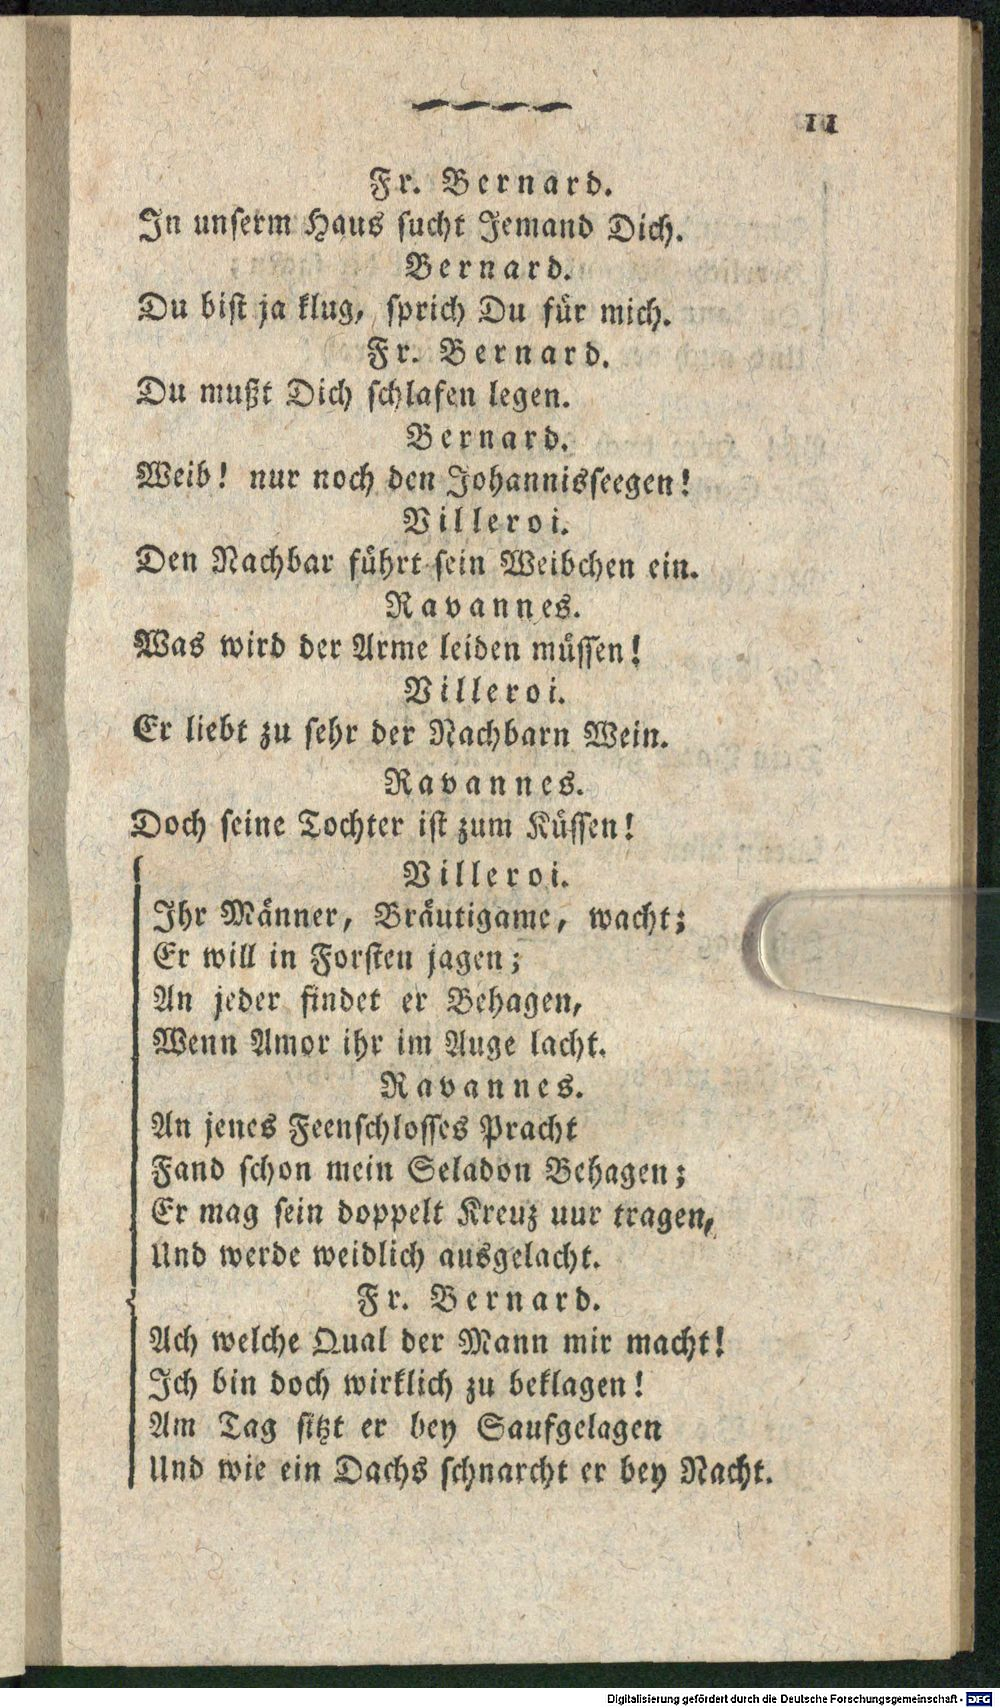 11
Fr. Bernard.
In unserm Haus sucht Jemand Dich.
Bernard.
Du bist ja klug, sprich Du für mich.
Fr. Bernard.
Du mußt Dich schlafen legen.
Bernard.
Weib! nur noch den Johannisseegen!
Villeroi.
Den Nachbar führt sein Weibchen ein.
Ravannes.
Was wird der Arme leiden müssen!
Villeroi.
Er liebt zu sehr der Nachbarn Wein.
Ravannes.
Doch seine Tochter ist zum Küssen!
Villeroi.
Ihr Männer, Bräutigame, wacht;
Er will in Forsten jagen;
An jeder findet er Behagen,
Wenn Amor ihr im Auge lacht.
Ravannes.
An jenes Feenschlosses Pracht
Fand schon mein Seladon Behagen;
Er mag sein doppelt Kreuz uur tragen,
Und werde weidlich ausgelacht.
Fr. Bernard.
Ach welche Qual der Mann mir macht!
Ich bin doch wirklich zu beklagen!
Am Tag sitzt er bey Saufgelagen
Und wie ein Dachs schnarcht er bey Nacht.
Digitalisierung gefördert durch die Deutsche Forschungsgemeinschaft - DFG